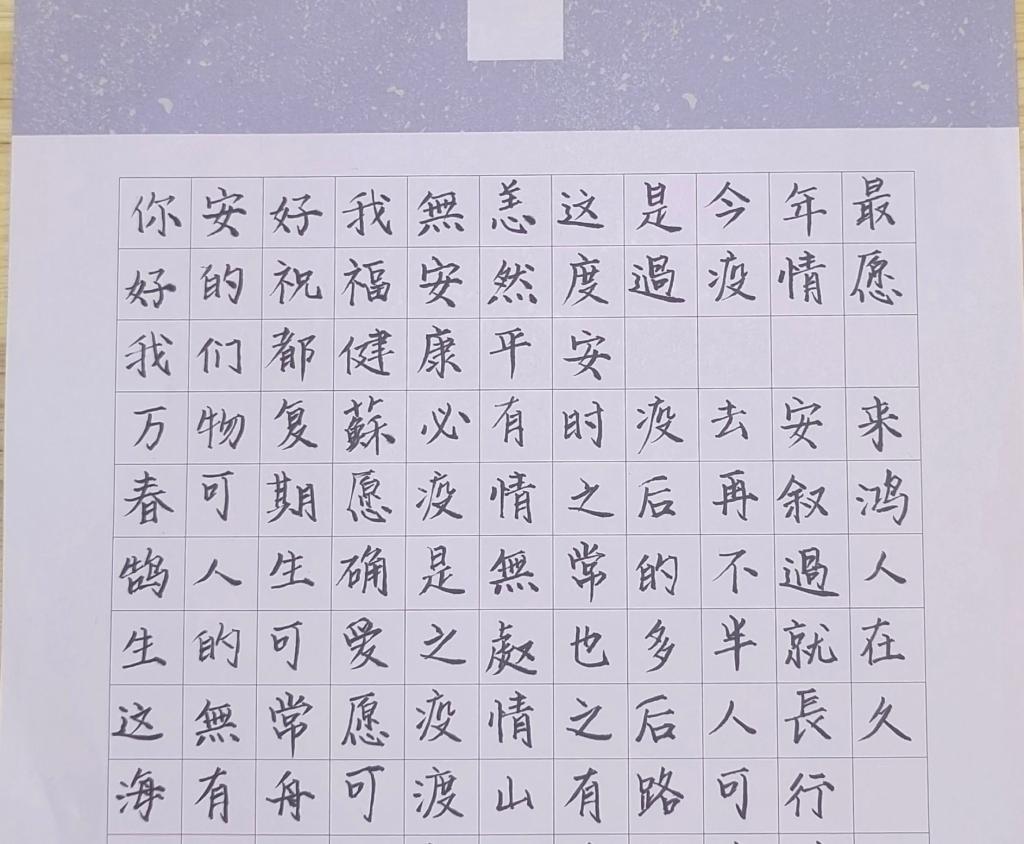 你安好我無恙这是今年最
好的祝福安然度過疫情愿
我们都健康平安
万物复蘇必有时疫去安来
春可期愿疫情之后再叙鸿
鹄人生确是無常的不過人
生的可爱之處也多半就在
这無常愿疫情之后人長久
海有舟可渡山有路可行